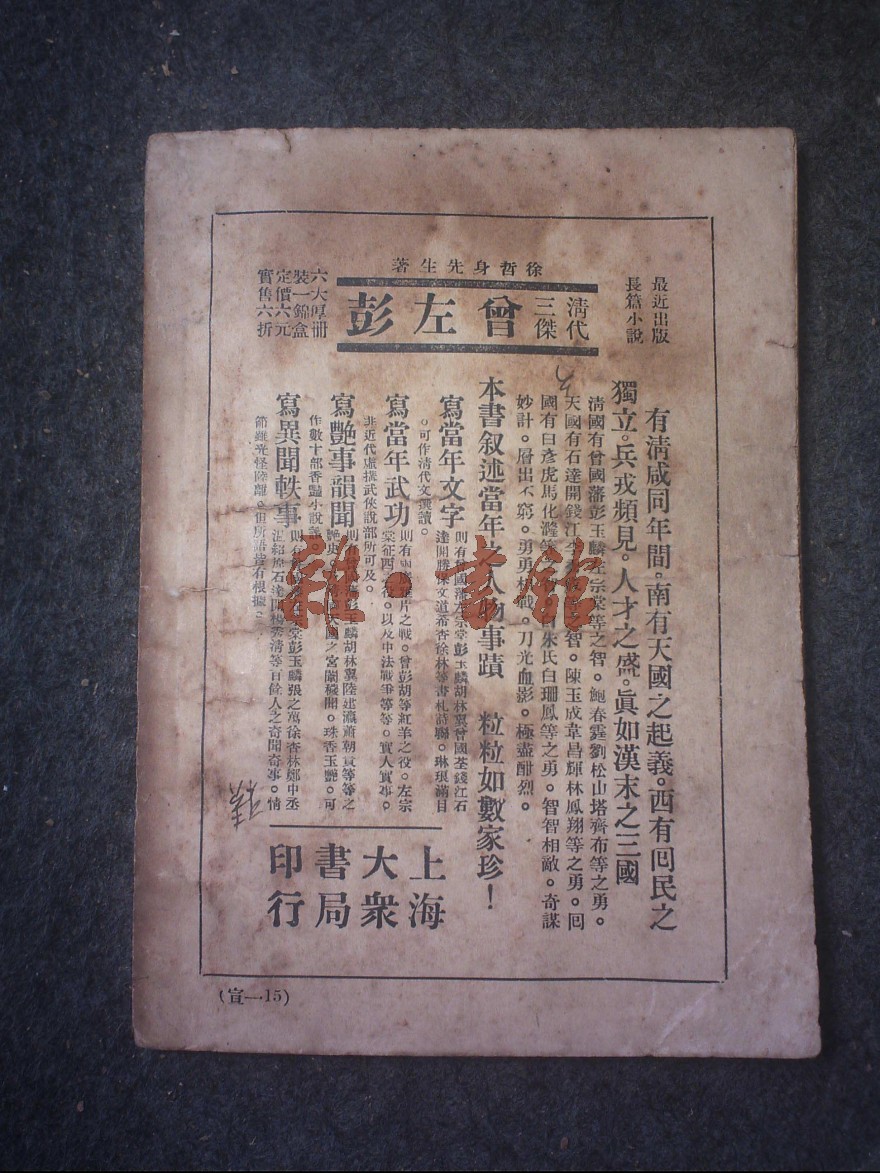 最近出版
長篇小說
徐哲身先生著
清代
三傑
曾左彭
六大厚冊
裝一錦盒
定價六元
實售六折
有清咸同年間。南有天國之起義。西有回民之
獨立。兵戎頻見。人才之盛。眞如漢末之三國
清國有曾國藩彭玉麟左宗棠等之智。鮑春霆劉松山塔齊布等之勇。
天國有石達開錢江李 智。陳玉成韋昌輝林鳳翔等之勇。回
國有白彥虎馬化漋等 朱氏白珊鳳等之勇。智智相敵。奇謀
妙計。層出不窮。勇勇相戰。刀光血影。極盡酣烈。
本書叙述當年之人物事蹟 粒粒如數家珍！
寫當年文字
則有曾國藩左宗棠彭玉麟胡林翼曾國荃錢江石
達開 文道希杏徐林等書札詩聯。琳琅滿目
。可作清代文選讀。
寫當年武功
則有 鴉片之戰。曾彭胡等紅羊之役。左宗
棠征西之役。以及中法戰爭等等。實人實事。
非近代虛撰武俠說部所可及。
寫艷事韻聞
則有 彭玉麟胡林翼陸建瀛蕭朝貴等等之
艷史 天國之宮闈穢聞。珠香玉艷。可
作數十部香豔小說
寫異聞軼事
則 左宗棠彭玉麟張之萬徐杏林鄭中丞
溫紹原石達開楊秀清等百餘人之奇聞奇事。情
節雖光怪陸離。但所語皆有根據。
上海
大衆
書局
印行
(宣—15)
雜·書館